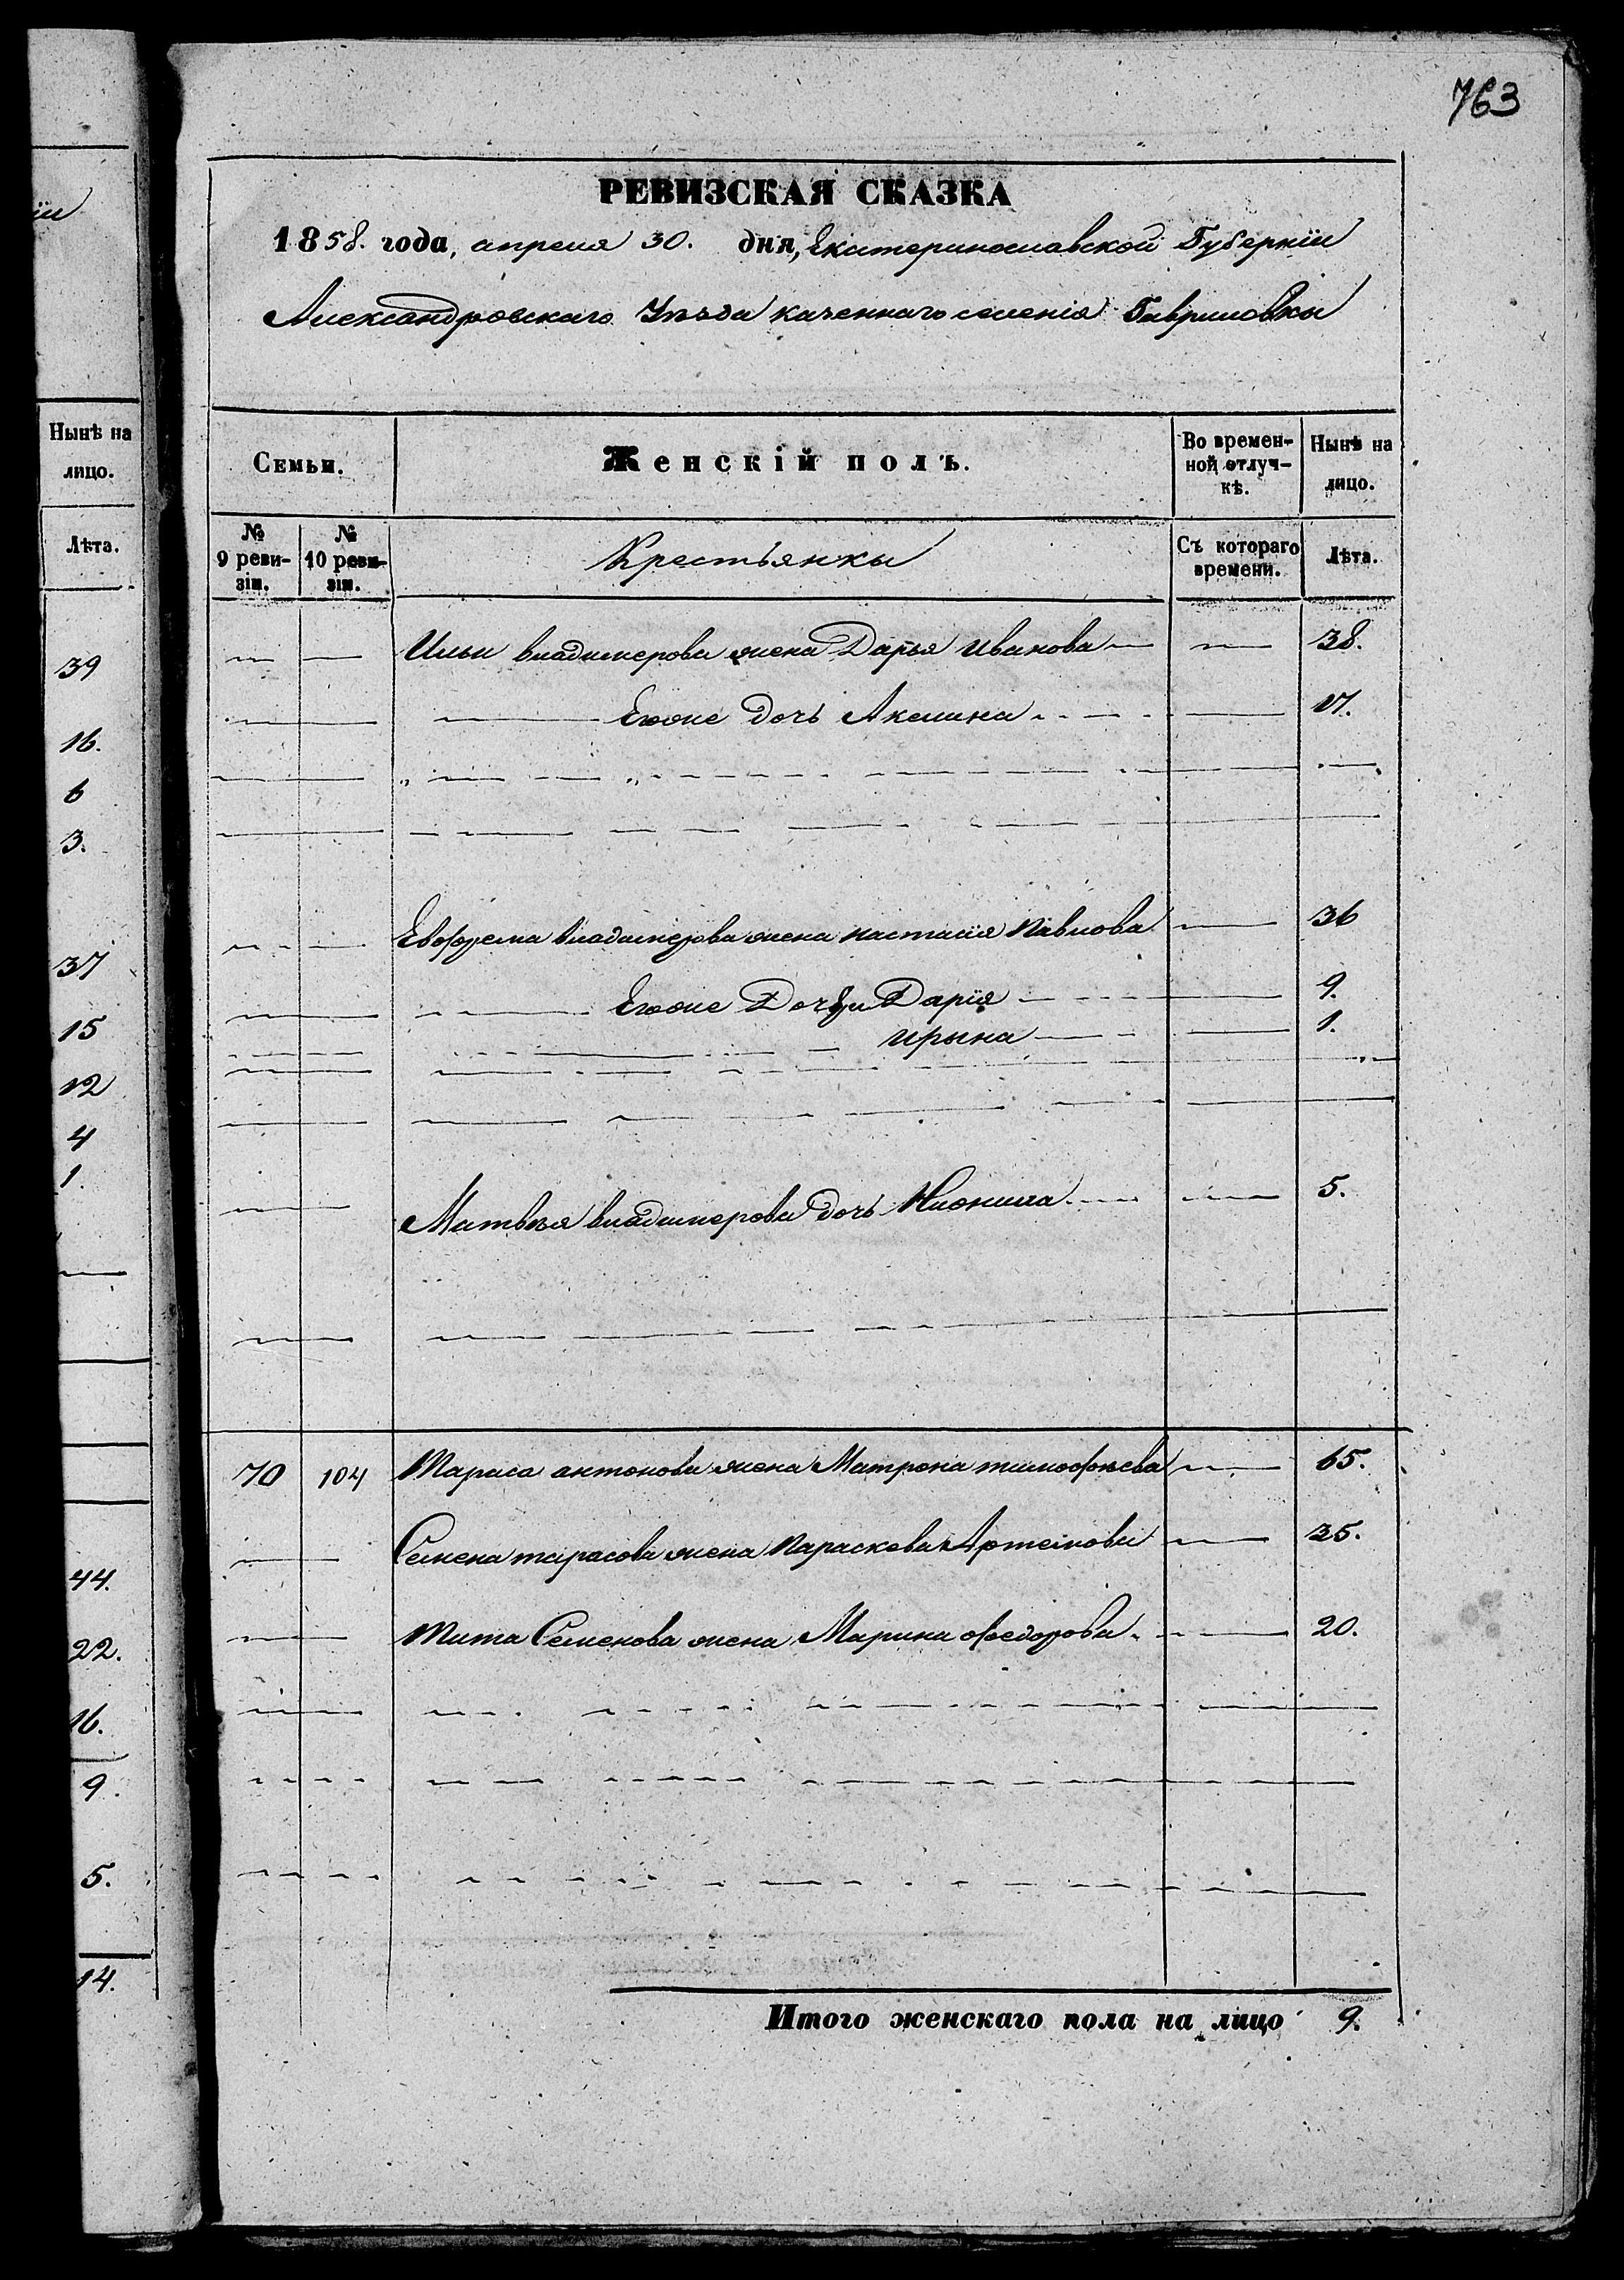 763
РЕВИЗСКАЯ СКАЗКА
1858. года, апреля 30. дня, Екатеринославской Губернїи
Александровскаго Уѣзда казеннаго селенія Гавриловки
Нынѣ на
лицо.
Лѣта.
39
16.
6
3.
37
15
12
4
1.
44.
22.
16.
9.
5.
14.
Семьи. Женскій полъ. Во времен-
ной отлуч-
кѣ. Нынѣ на
лицо.
№
9 реви-
зіи. №
10 реви-
зіи. Крестьянки Съ котораго
времени. Лѣта.
Ильи владимерова жена Дарья Иванова 38.
Егоже дочь Акелина 17.
Евофрема владимерова жена настасїя Павлова 36
Егоже Дочери Дарїя 9.
Ирына 1.
Матвѣя владимерова дочь 5.
70 104 Тараса антонова жена Матрона тимофѣева 65.
Семена тарасова жена Параскева Артемова 35.
Тита Семенова жена Марина Федорова 20.
Итого женскаго пола на лицо 9.